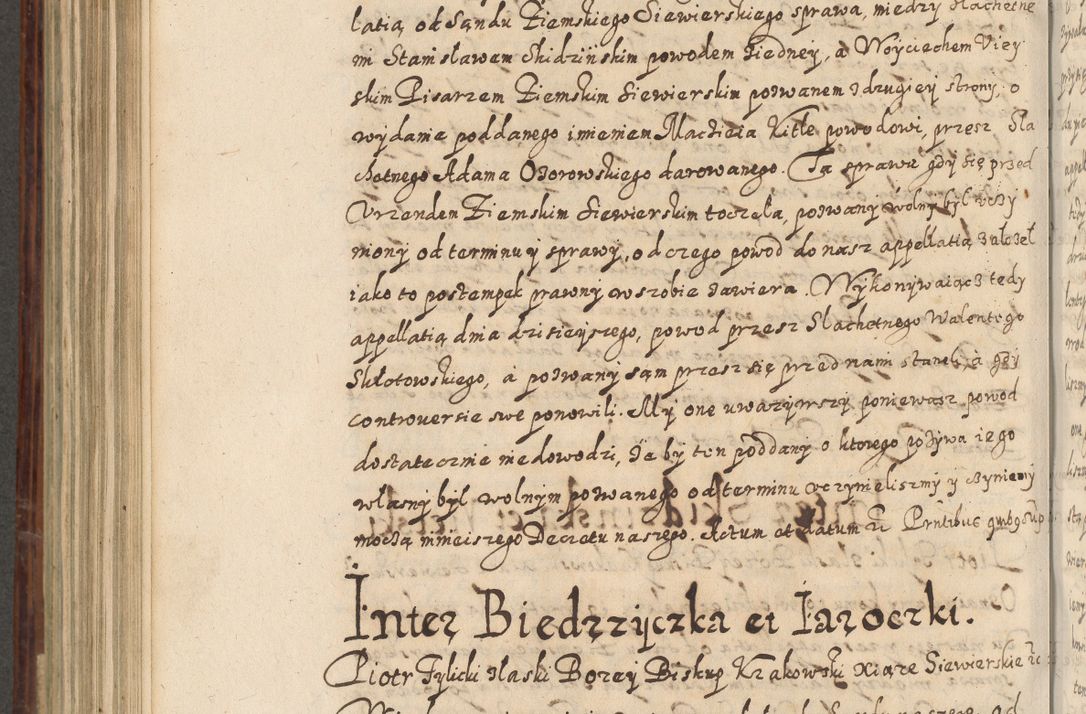 latią, od Sąndu Ziemskiego Siewierskiego sprawa, miedzy Slachetne
mi Stanisławem Skidzińskim powodem ziedney, a Woyciechem Viey
skim Pisarzem Ziemskim Siewierskim pozwanem zdrugiey strony, o
wydanie poddanego imieniem Macheia Kitle powodowi, przesz Sla
chetnego Adama Ozorowskiego darowanego. Ta sprawa gdy się przed
Vrzendem Ziemskim Siewierskim toczela, pozwany wolny był vczy
niony od terminu y sprawy, od czego powod do nasz appellatią założeł
iako to postempek prawny wszobie zawiera. Wykonywaiącz tedy
appellatią dnia dzisieyszego, powod przesz Slachetnego Walentego
Skłotowskiego, a pozwany sąm przesz się przed nami staneli, a gdy
controversie swe ponowili. My one uwazywszy, poniewasz powod
dostatecznie niedowodzi, że by ten poddany o ktorego pożywa iego
własny był wolnym pozwanego od terminu vczynieliszmy y czyniemy
mocżą ninieiszego Decretu naszego. Actum et datum Prntibus
Inter Biedrzyczka et Iaroczki.
Piotr Tylicki złaski Bozey Biskup Krakowski Xiąże Siewierskie